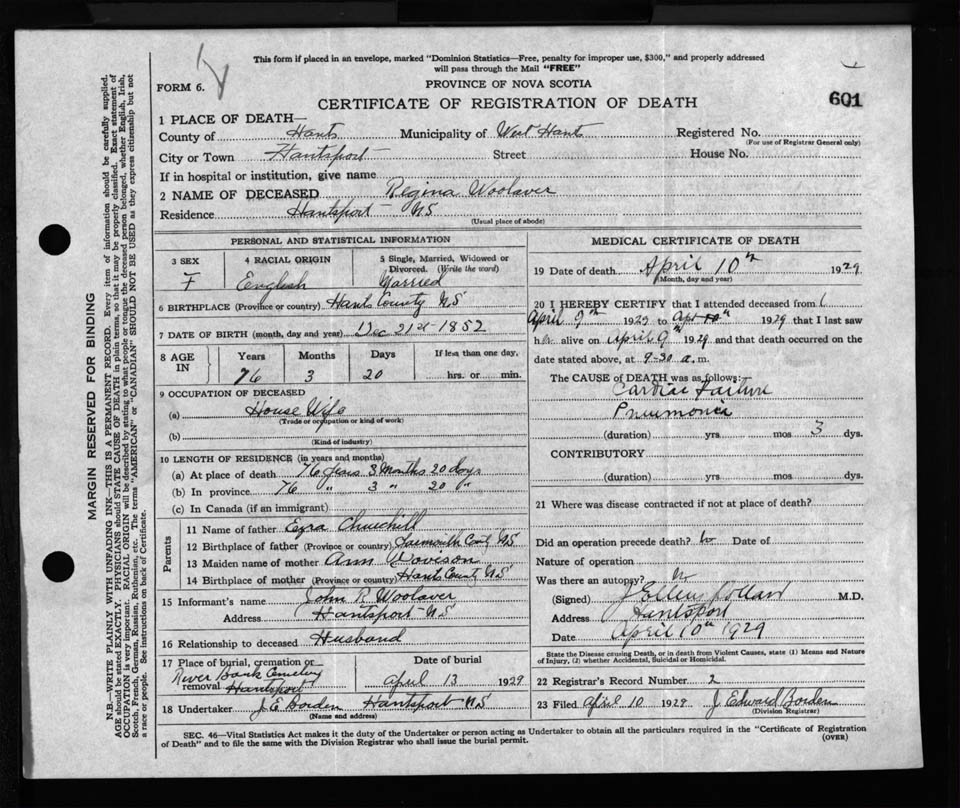 This form if placed in an envelope, marked "Dominion Statistics—Free, penalty for improper use, $300," and properly addressed
will pass through the Mail "FREE"
FORM 6.
PROVINCE OF NOVA SCOTIA
CERTIFICATE OF REGISTRATION OF DEATH
601
1 PLACE OF DEATH—
County of Hants Municipality of West Hants Registered No.
(For use of Registrar General only)
City or Town Hantsport Street House No.
If in hospital or institution, give name
2 NAME OF DECEASED Regina Woolaver
Residence Hantsport — NS
(Usual place of abode)
PERSONAL AND STATISTICAL INFORMATION
3 SEX 4 RACIAL ORIGIN 5 Single, Married, Widowed or
Divorced. (Write the word)
F English Married
6 BIRTHPLACE (Province or country) Hants County NS
7 DATE OF BIRTH (month, day and year) Dec 21st 1852
8 AGE IN Years Months Days If less than one day,
76 3 20 hrs. or min.
9 OCCUPATION OF DECEASED
(a) House Wife
(Trade or occupation or kind of work)
(b)
(Kind of industry)
10 LENGTH OF RESIDENCE (in years and months)
(a) At place of death 76 years 3 Months 20 days
(b) In province 76 " 3 " 20 "
(c) In Canada (if an immigrant)
Parents
11 Name of father Ezra Churchill
12 Birthplace of father (Province or country) Yarmouth Conty NS
13 Maiden name of mother Ann Davison
14 Birthplace of mother (Province or country) Hants County NS
15 Informant's name John R Woolaver
Address Hantsport NS
16 Relationship to deceased Husband
17 Place of burial, cremation or Date of burial
River Bank Cemetery
removal Hantsport April 13 1929
18 Undertaker J E Borden Hantsport NS
(Name and address)
MEDICAL CERTIFICATE OF DEATH
19 Date of death April 10th 1929
(Month, day and year)
20 I HEREBY CERTIFY that I attended deceased from
April 9th 1929 to Apr 10th 1929 that I last saw
h alive on April 9th 1929 and that death occurred on the
date stated above, at 9-30 a.m.
The CAUSE OF DEATH was as follows:
Cardiac Failure
Pneumonia
(duration) yrs mos 3 dys.
CONTRIBUTORY
(duration) yrs. mos. dys.
21 Where was disease contracted if not at place of death?
Did an operation precede death? No Date of
Nature of operation
Was there an autopsy? No
(Signed) M.D.
Address Hantsport
Date April 10th 1929
State the Disease causing Death, or in death from Violent Causes, state (1) Means and Nature
of Injury, (2) whether Accidental, Suicidal or Homicidal.
22 Registrar's Record Number 2
23 Filed April 10 1929 J Edward Borden
(Division Registrar)
SEC. 46—Vital Statistics Act makes it duty of the Undertaker or person acting as Undertaker to obtain all the particulars required in the "Certificate of Registration
of Death" and to file the same with the Division Registrar who shall issue the burial permit.
(OVER)
MARGIN RESERVED FOR BINDING
N.B.—WRITE PLAINLY WITH UNFADING INK—THIS IS A PERMANENT RECORD. Every item of information should be carefully supplied.
AGE should be stated EXACTLY. PHYSICIANS should STATE CAUSE OF DEATH in plain terms, so that it may be properly classified. Exact statement of
OCCUPATION is very important. RACIAL ORIGIN will be described by stating to what people or tongue the deceased person belonged, whether English, Irish,
Scotch, French, German, Russian, Ruthenian, etc. The terms "AMERICAN" or "CANADIAN" SHOULD NOT BE USED as they express citizenship but not
a race or people. See instructions on back of Certificate.